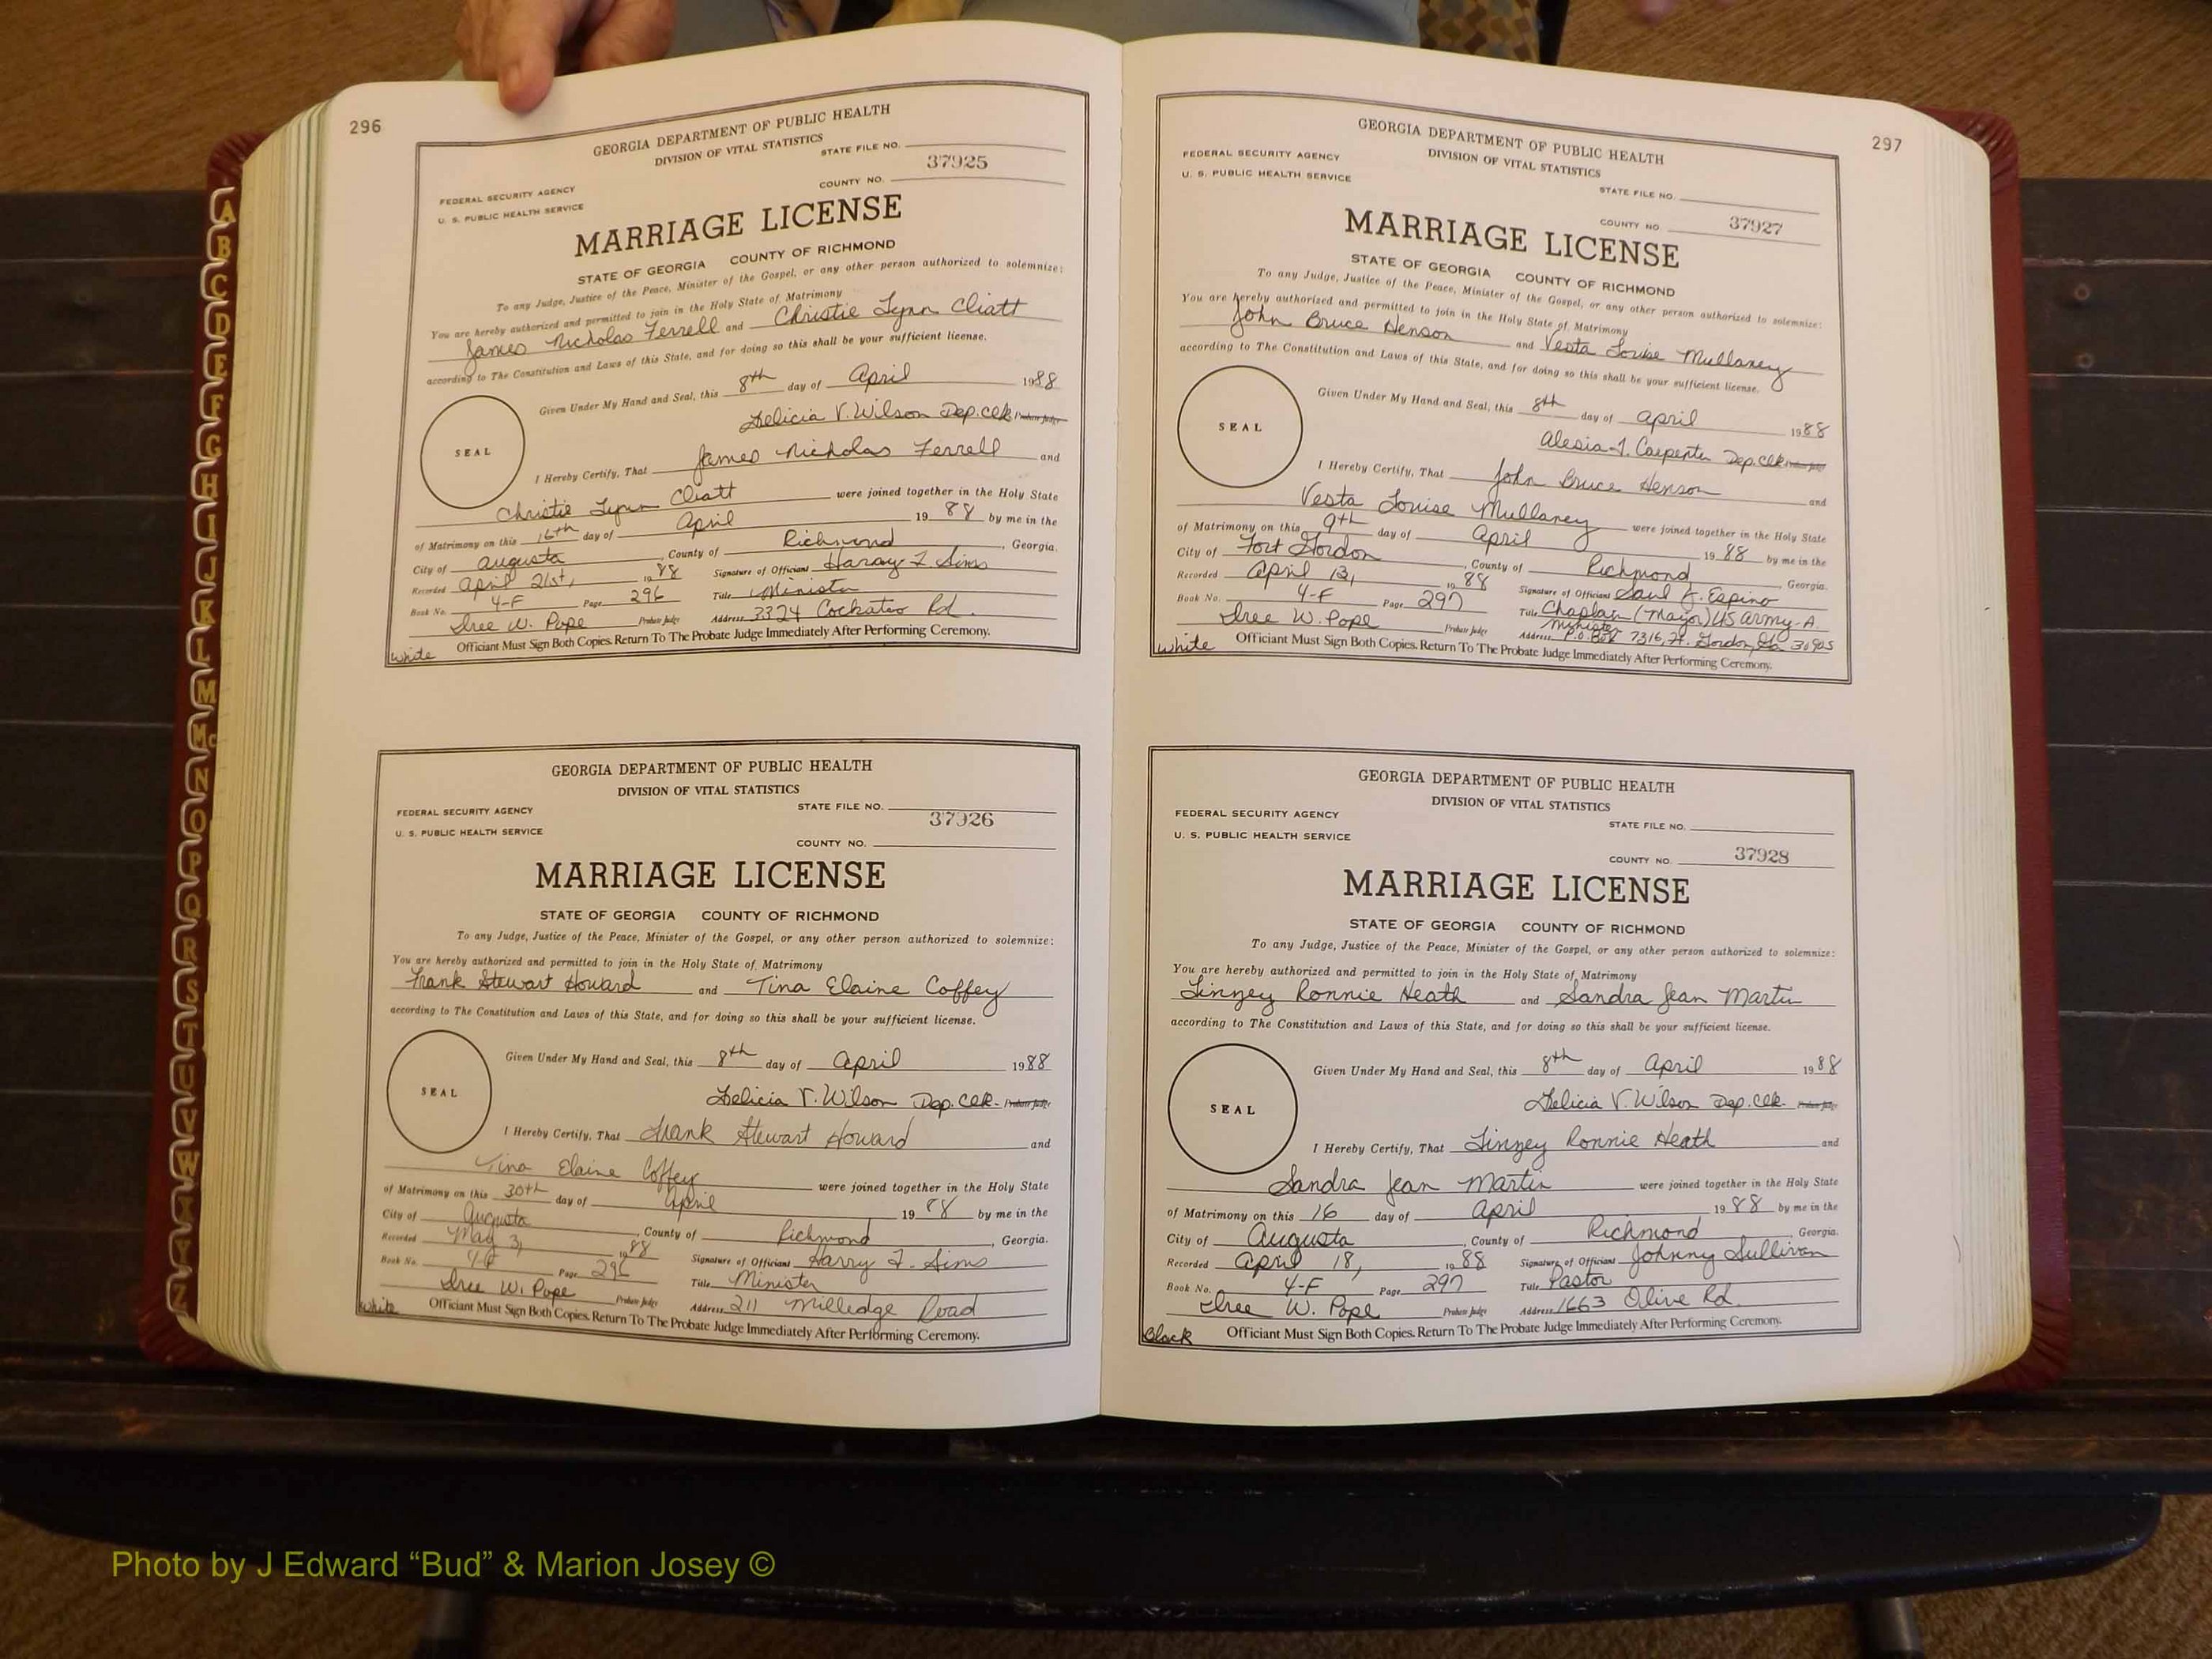 296
GEORGIA DEPARTMENT OF PUBLIC HEALTH
DIVISION OF VITAL STATISTICS
STATE FILE NO.
37925
FEDERAL SECURITY AGENCY
COUNTY NO.
U. S. PUBLIC HEALTH SERVICE
MARRIAGE LICENSE
STATE OF GEORGIA COUNTY OF RICHMOND
To any Judge, Justice of the Peace, Minister of the Gospel, or any other person authorized to solemnize:
You are hereby authorized and permitted to join in the Holy State of Matrimony
James Nicholas Ferrell and Christie Lynn Cliatt
according to The Constitution and Laws of this State, and for doing so this shall be your sufficient license.
Given Under My Hand and Seal, this 8th day of April 1988
SEAL
Felicia V. Wilson Dep. Clk. Probate Judge
I Hereby Certify, That James Nicholas Ferrell and
Christie Lynn Cliatt were joined together in the Holy State
of Matrimony on this 16th day of April 19 88 by me in the
City of Augusta, County of Richmond, Georgia.
Recorded April 21st, 1988 Signature of Officiant Harry F. Sims
Book No. 4-F Page 296 Title Minister
W. Pope Probate Judge Address 3324 Cockatoo Rd.
Officiant Must Sign Both Copies. Return To The Probate Judge Immediately After Performing Ceremony.
White
GEORGIA DEPARTMENT OF PUBLIC HEALTH
DIVISION OF VITAL STATISTICS
FEDERAL SECURITY AGENCY
STATE FILE NO.
37926
U. S. PUBLIC HEALTH SERVICE
COUNTY NO.
MARRIAGE LICENSE
STATE OF GEORGIA COUNTY OF RICHMOND
To any Judge, Justice of the Peace, Minister of the Gospel, or any other person authorized to solemnize:
You are hereby authorized and permitted to join in the Holy State of Matrimony
Frank Stewart Howard and Tina Elaine Coffey
according to The Constitution and Laws of this State, and for doing so this shall be your sufficient license.
Given Under My Hand and Seal, this 8th day of April 1988
SEAL
Felicia V. Wilson Dep. Clk. Probate Judge
I Hereby Certify, That Frank Stewart Howard and
Tina Elaine Coffey were joined together in the Holy State
of Matrimony on this 30th day of April 19 88 by me in the
City of Augusta, County of Richmond, Georgia.
Recorded May 3, 1988 Signature of Officiant Harry F. Sims
Book No. 4-F Page 296 Title Minister
W. Pope Probate Judge Address 211 Milledge Road
Officiant Must Sign Both Copies. Return To The Probate Judge Immediately After Performing Ceremony.
White
297
GEORGIA DEPARTMENT OF PUBLIC HEALTH
FEDERAL SECURITY AGENCY
DIVISION OF VITAL STATISTICS
U. S. PUBLIC HEALTH SERVICE
STATE FILE NO.
COUNTY NO. 37927
MARRIAGE LICENSE
STATE OF GEORGIA COUNTY OF RICHMOND
To any Judge, Justice of the Peace, Minister of the Gospel, or any other person authorized to solemnize:
You are hereby authorized and permitted to join in the Holy State of Matrimony
John Bruce Henson and Vesta Louise Mullaney
according to The Constitution and Laws of this State, and for doing so this shall be your sufficient license.
Given Under My Hand and Seal, this 8th day of April 1988
SEAL
Alesia J. Carpenter Dep. Clk. Probate Judge
I Hereby Certify, That John Bruce Henson and
Vesta Louise Mullaney were joined together in the Holy State
of Matrimony on this 9th day of April 19 88 by me in the
City of Fort Gordon, County of Richmond, Georgia.
Recorded April 13, 1988 Signature of Officiant Saul J. Espino
Book No. 4-F Page 297 Title Chaplain (Major) US Army-A. Minister
W. Pope Probate Judge Address P.O. Box 7316, Ft. Gordon, Ga. 30905
Officiant Must Sign Both Copies. Return To The Probate Judge Immediately After Performing Ceremony.
White
GEORGIA DEPARTMENT OF PUBLIC HEALTH
DIVISION OF VITAL STATISTICS
FEDERAL SECURITY AGENCY
STATE FILE NO.
U. S. PUBLIC HEALTH SERVICE
COUNTY NO. 37928
MARRIAGE LICENSE
STATE OF GEORGIA COUNTY OF RICHMOND
To any Judge, Justice of the Peace, Minister of the Gospel, or any other person authorized to solemnize:
You are hereby authorized and permitted to join in the Holy State of Matrimony
Linzey Ronnie Heath and Sandra Jean Martin
according to The Constitution and Laws of this State, and for doing so this shall be your sufficient license.
Given Under My Hand and Seal, this 8th day of April 1988
SEAL
Felicia V. Wilson Dep. Clk. Probate Judge
I Hereby Certify, That Linzey Ronnie Heath and
Sandra Jean Martin were joined together in the Holy State
of Matrimony on this 16 day of April 19 88 by me in the
City of Augusta, County of Richmond, Georgia.
Recorded April 18, 1988 Signature of Officiant Johnny Sullivan
Book No. 4-F Page 297 Title Pastor
W. Pope Probate Judge Address 1663 Olive Rd.
Officiant Must Sign Both Copies. Return To The Probate Judge Immediately After Performing Ceremony.
Black
A
B
C
D
E
F
G
H
I
J
K
L
M
Mc
N
O
P
Q
R
S
T
U
V
W
X
Y
Z
Photo by J Edward “Bud” & Marion Josey ©